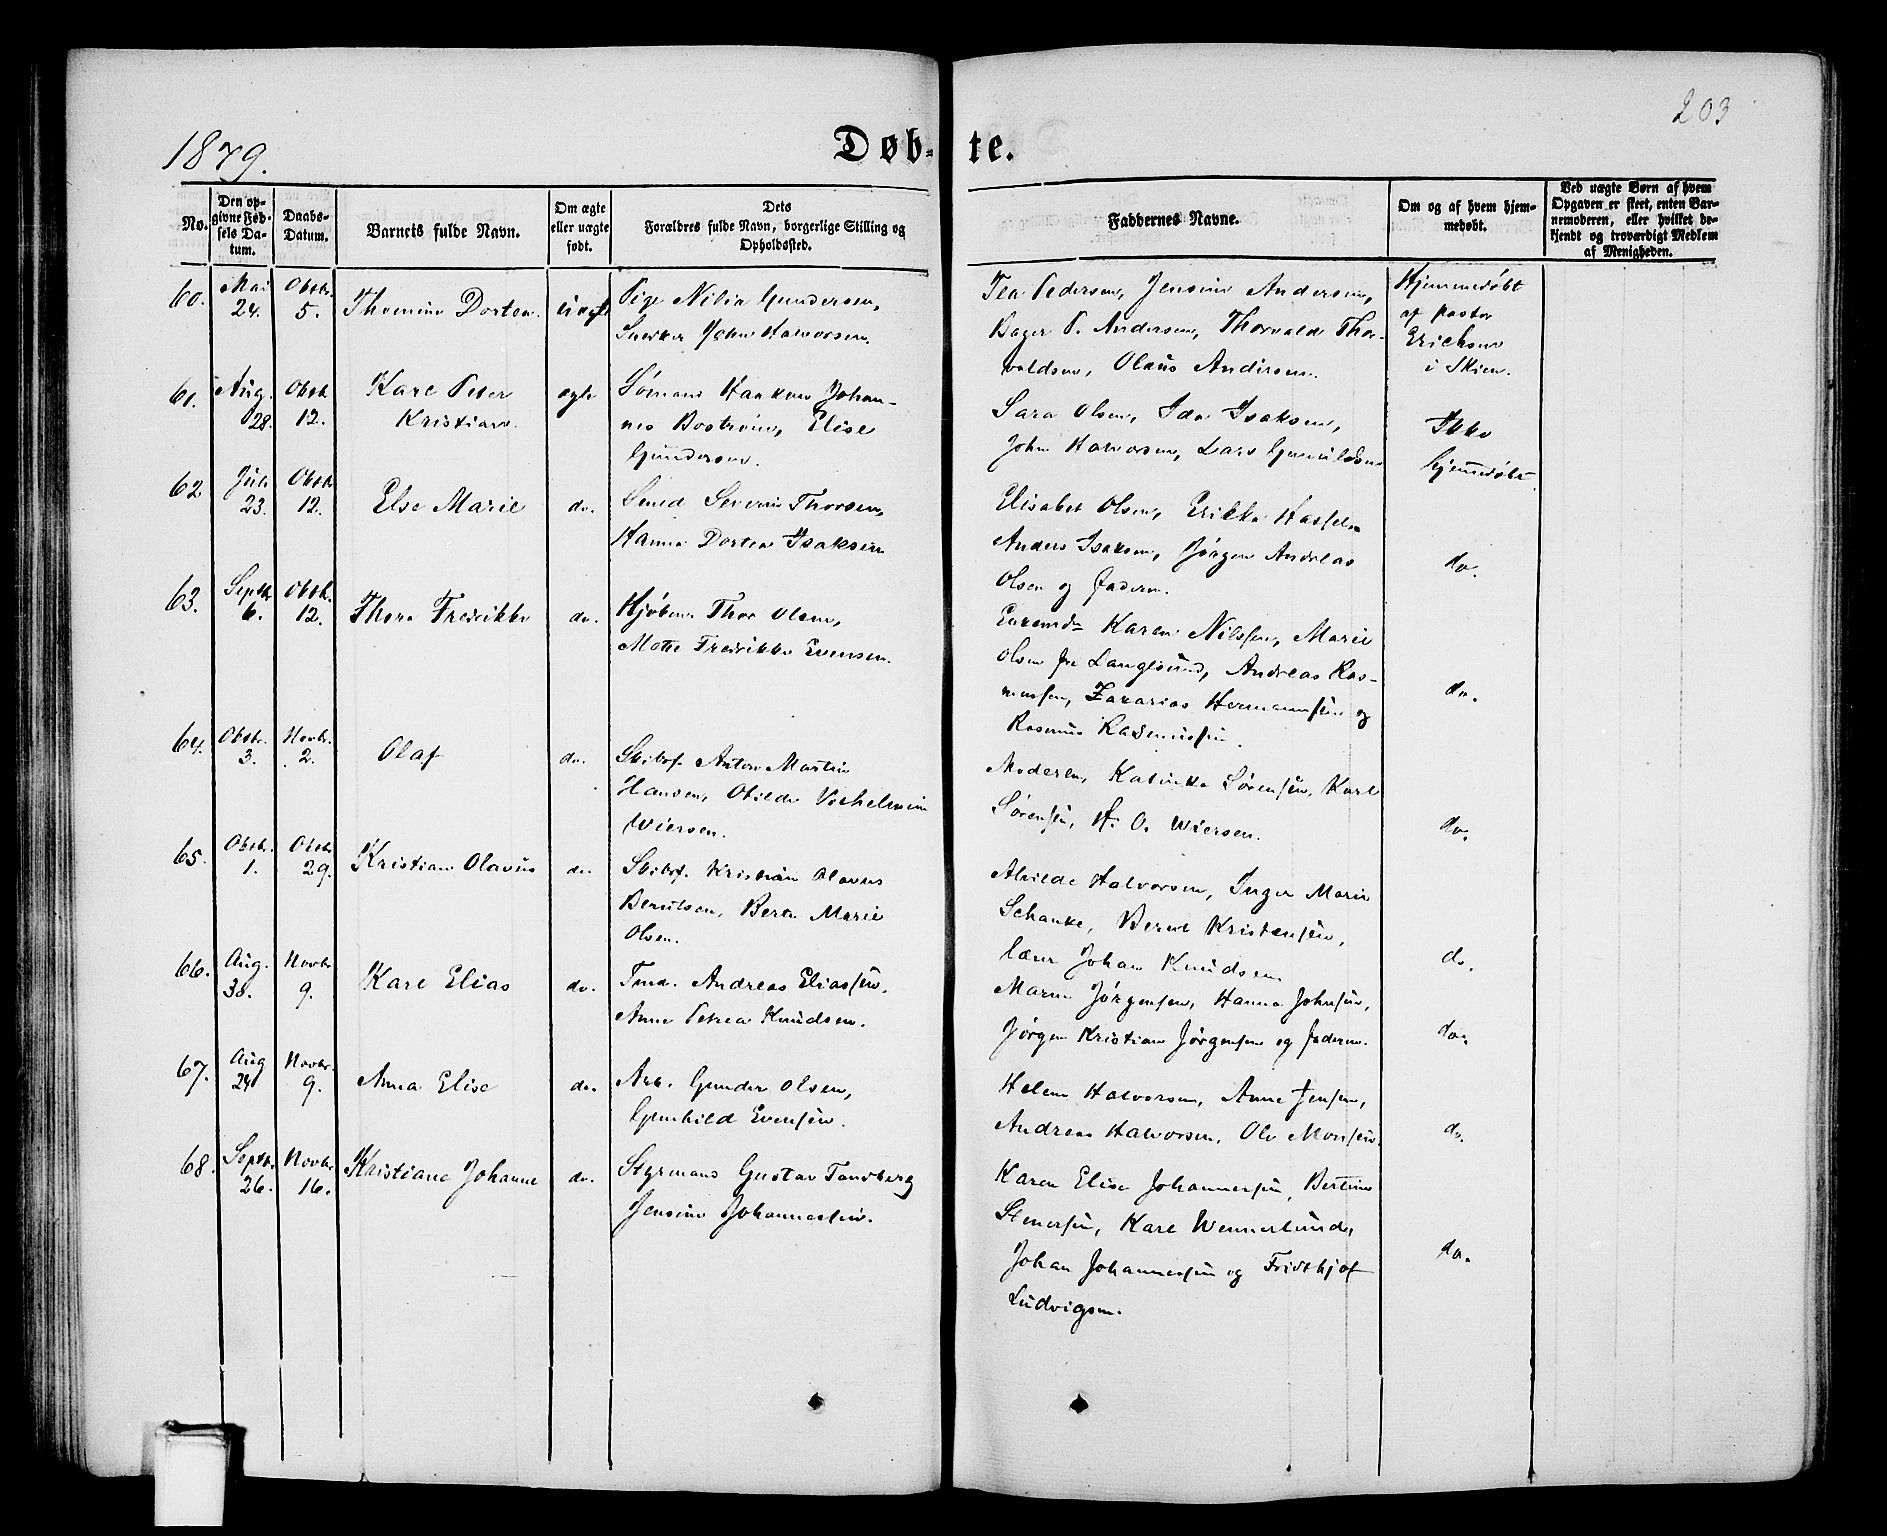 203
1879.
Døb- te.
No.
Den op-
givne Fød-
sels Da-
tum.
Daabs-
Datum.
Barnets fulde Navn.
Om ægte
eller uægte
født.
Dets
Forældres fulde Navn, borgerlige Stilling og
Opholdssted.
Faddernes Navne.
Om og af hvem hjem-
medøbt.
Ved uægte Børn af hvem
Opgaven er skeet, enten Bar-
nemoderen, eller hvilket be-
kjendt og troværdigt Medlem
af Menigheden.
60.
Mai
24.
Oktbr.
5.
Thomine Dortea.
uægte
Pige Nilia Gundersen,
Snerker John Halvorsen.
Tea Pedersen, Jensine Andersen,
Bager P. Andersen, Thorvald Thor-
valdsen, Olaus Andersen.
Hjemmedøbt
af pastor
Erichsen
i Skien.
61.
Aug.
28.
Oktb.
12.
Karl Peter
Kristian.
ægte
Sømand Haakon Johan-
nes Bostrøm, Elise
Gundersen.
Sara Olsen, Ida Isaksen,
John Halvorsen, Lars Gunuldsen
Ikke
hjemmedøbt.
62
Juli
23.
Oktb.
12.
Else Marie
do.
Smed Severin Thorsen,
Hanna Dortea Isaksen
Elisabet Olsen, Erikka
Anders Isaksen, Jørgen Andreas
Olsen og faderen.
do.
63.
Septbr
6.
Oktbr.
12.
Thora Fredrikke
do.
Kjøbm. Thor Olsen,
Mette Fredrikke Evensen.
Karen Nilssen, Marie
Olsen fra Langesund, Andreas Ras-
mussen, Zakarias Hermannsen og
Rasmus Rasmussen.
do.
64.
Oktbr.
3.
Novbr.
2.
Olaf
do.
Skibsf. Anton Martin
Hansen, Otilde Vilhelmine
Wiersen.
Moderen, Katinka Sørensen, Karl
Sørensen, H. O. Wiersen.
do.
65.
Oktbr.
1.
Oktbr
29.
Kristian Olavus
do.
Skibsf. Kristian Olavus
Berntsen, Berte Marie
Olsen.
Alvilde Halvorsen, Inger Marie
Schanke, Bernt Kristensen,
lærer Johan Knudsen
do.
66.
Aug.
30.
Novbr
9.
Karl Elias
do.
Tmd. Andreas Eliassen,
Anne Petrea Knudsen.
Maren Jørgensen, Hanna Johnsen,
Jørgen Kristian Jørgensen og faderen.
do.
67.
Aug
24
Novbr.
9.
Anna Elise
do.
Arb. Gunder Olsen,
Gunhild Evensen.
Helene Halvorsen, Anne Jensen,
Andreas Halvorsen, Ole Monsen.
do.
68.
Septbr.
26.
Novbr.
16.
Kristiane Johanne
do.
Styrmand Gustav Tandberg
Jensine Johannessen.
Karen Elise Johannessen, Bertine
Stenersen, Karl Wennerlund,
Johan Johannessen og Fridthjof
Ludvigsen.
do.